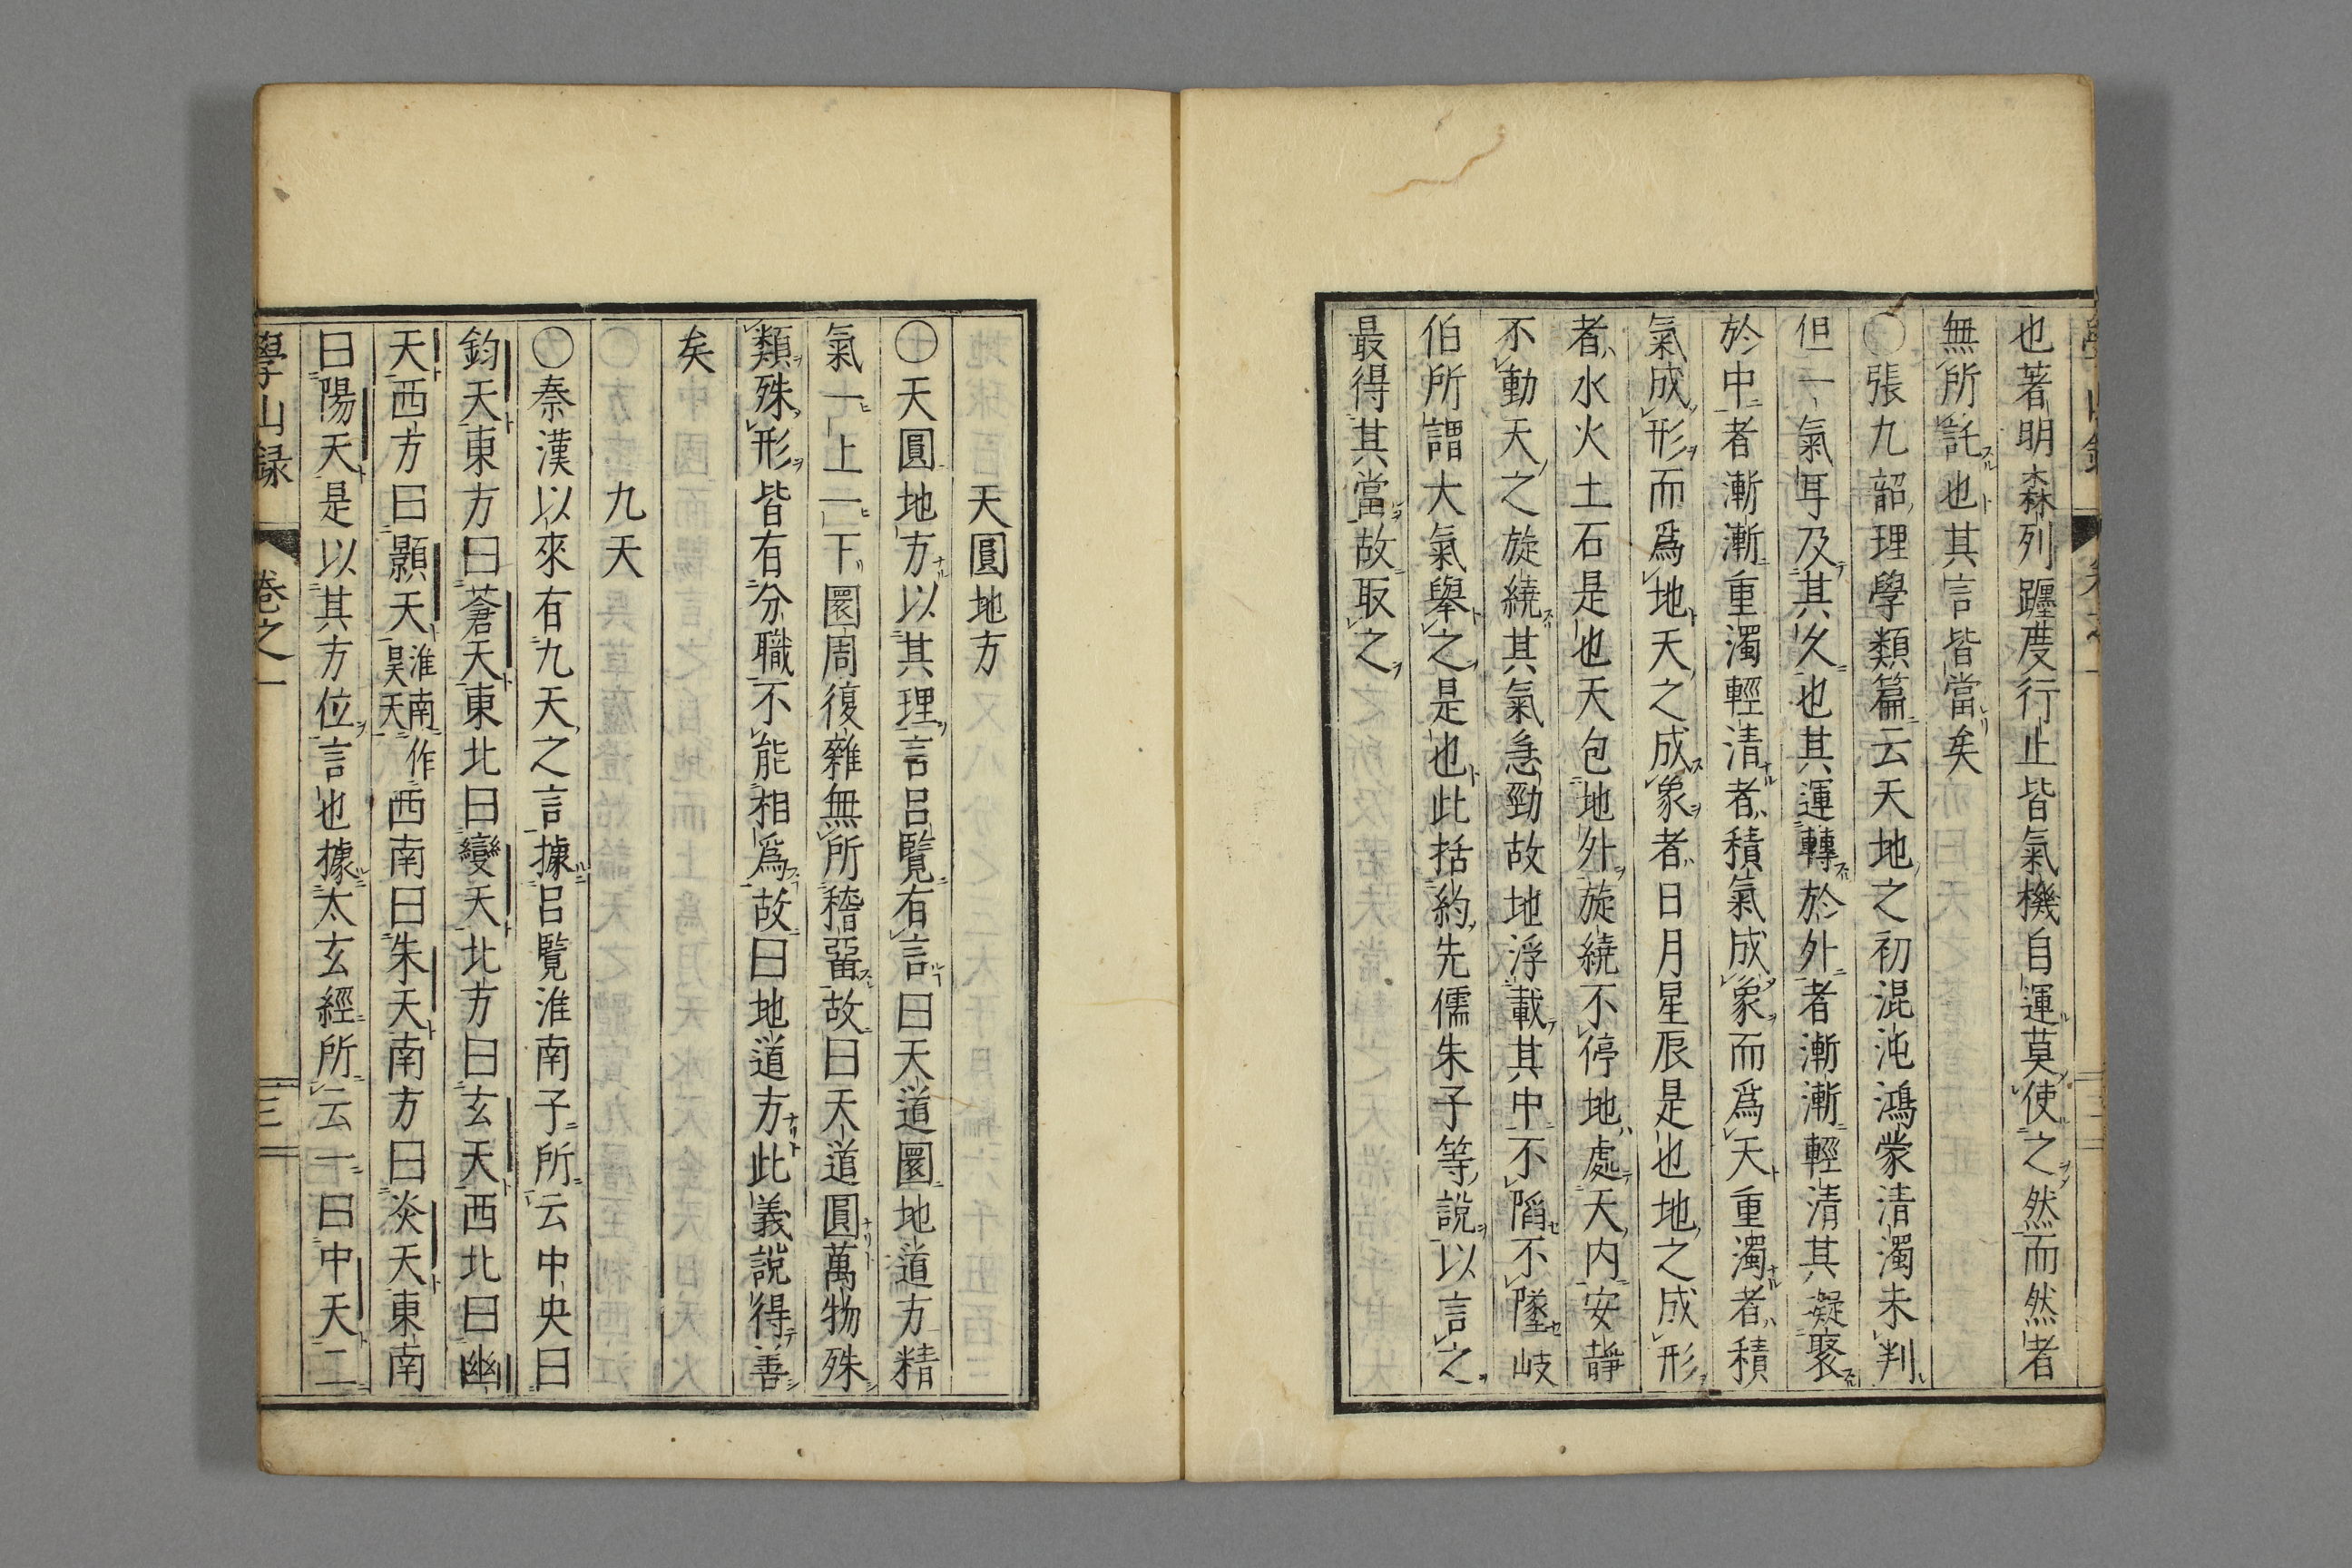 也著明森列躔度行止皆氣機自運莫使之然而然者
無所託也其言皆當矣
〇張九韶理學類篇云天地之初混沌鴻蒙清濁未判
但一氣耳及其久也其運轉於外者漸漸輕清其凝聚
於中者漸漸重濁輕清者積氣成象而爲天重濁者積
氣成形而爲地天之成象者日月星辰是也地之成形
者水火土石是也天包地外旋繞不停地處天内安靜
不動天之旋繞其氣急勁故地浮載其中不陷不墜岐
伯所謂大氣舉之是也此括約先儒朱子等說以言之
最得其當故取之
天圓地方
〇天圓地方以其理言呂覽有言曰天道圜地道方精
氣一上一下圜周復雜無所稽畱故曰天道圓萬物殊
類殊形皆有分職不能相爲故曰地道方此義說得善
矣
九天
〇秦漢以來有九天之言據呂覽淮南子所云中央曰
鈞天東方曰蒼天東北曰變天北方曰玄天西北曰幽
天西方曰顥天淮南作昊天西南曰朱天南方曰炎天東南
曰陽天是以其方位言也據太玄經所云一曰中天二
學山録 卷之一 三